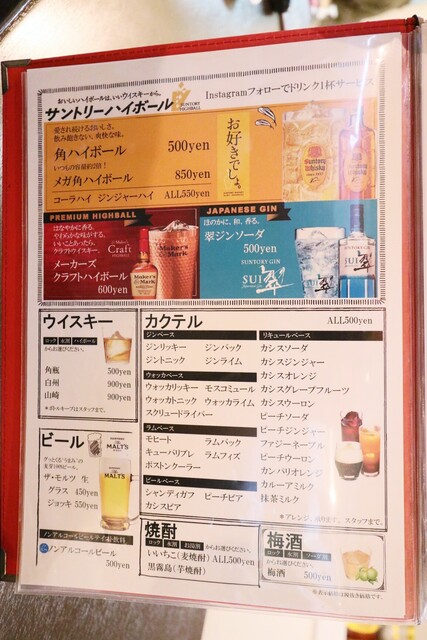 おいしいハイボールは、いいウイスキーから。
サントリーハイボール
SUNTORY HIGHBALL
Instagramフォローでドリンク1杯サービス
愛され続けるおいしさ。
飲み飽きない、爽快な味。
角ハイボール 500yen
いつもの約2倍!
メガ角ハイボール 850yen
コーラハイ ジンジャーハイ ALL550yen
お好きでしょ。
PREMIUM HIGHBALL
はなやかに香る、
やわらかな味がする。
いいことあったら、
クラフトウイスキー。
メーカーズ
クラフトハイボール
600yen
Craft
Maker's Mark
JAPANESE GIN
ほのかに、和、香る。
翠ジンソーダ
500yen
SUNTORY GIN
SUI 翠
ウイスキー
ロック 水割 ハイボール
からお選びください。
角瓶 500yen
白州 900yen
山崎 900yen
*ボトルキープはスタッフまで。
ビール
SUNTORY
MALT'S
ザ・モルツ 生
グラス 450yen
ジョッキ 550yen
ノンアルコールビールテイスト飲料
ノンアルコールビール
500yen
カクテル ALL500yen
ジンベース
ジンリッキー ジンバック
ジントニック ジンライム
ウォッカベース
ウォッカリッキー モスコミュール
ウォッカトニック ウォッカライム
スクリュードライバー
ラムベース
モヒート ラムバック
キューバリブレ ラムフィズ
ボストンクーラー
ビールベース
シャンディガフ ピーチビア
カシスビア
リキュールベース
カシスソーダ
カシスジンジャー
カシスオレンジ
カシスグレープフルーツ
カシスウーロン
ピーチソーダ
ピーチジンジャー
ファジーネーブル
ピーチウーロン
カンパリオレンジ
カルーアミルク
抹茶ミルク
*アレンジ、承ります。スタッフまで。
焼酎
ロック 水割 お湯割 からお選びください。
いいちこ(麦焼酎) ALL500yen
黒霧島(芋焼酎)
梅酒
ロック 水割 ソーダ割
からお選びください。
梅酒 500yen
※表示価格は税抜き価格です。